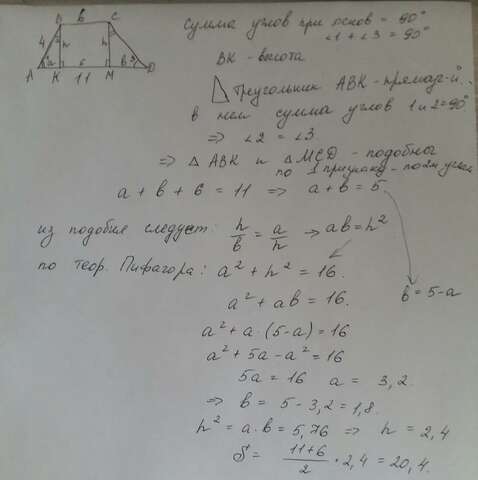 B 6 C
4 2 h h
A 1 а 6 в 3 D
K 11 M
сумма углов при основ = 90°
∠1 + ∠3 = 90°
ВК - высота
Треугольник АВК - прямоуг-й.
в нем сумма углов 1 и 2 = 90°
⇒ ∠2 = ∠3.
⇒ Δ АВК и Δ MCD - подобны
по 1 признаку - по 2м углам
а + в + 6 = 11 ⇒ а + в = 5
из подобия следует: h/в = a/h → ав = h²
по теор. Пифагора: а² + h² = 16.
а² + ав = 16.
в = 5 - а
а² + а · (5 - а) = 16
а² + 5а - а² = 16
5а = 16 а = 3,2.
⇒ в = 5 - 3,2 = 1,8.
h² = а · в = 5,76 ⇒ h = 2,4
S = (11+6)/2 · 2,4 = 20,4.